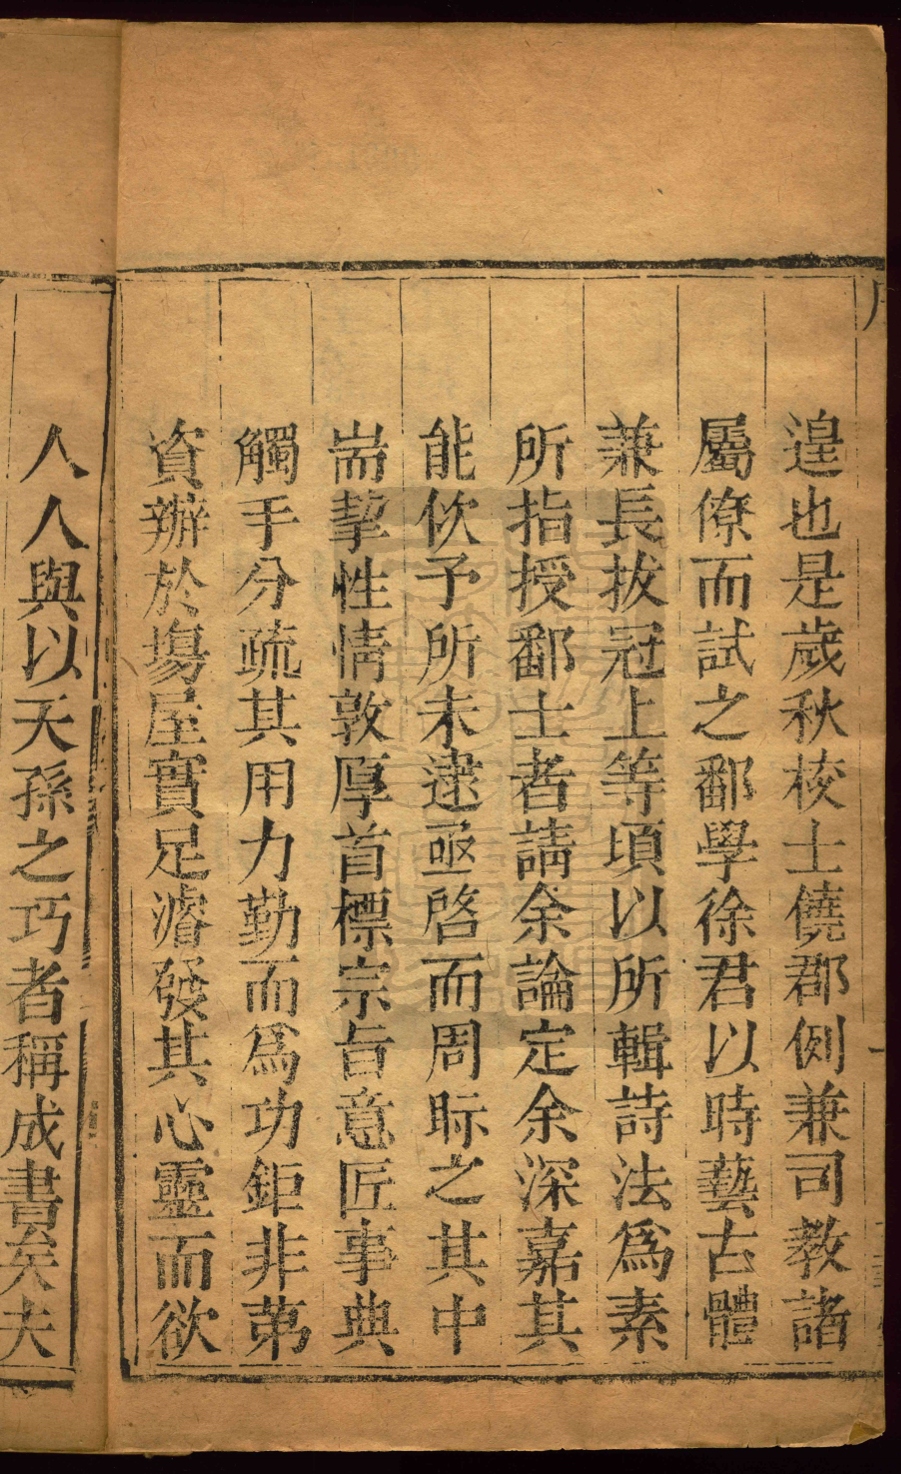 遑也是歲秋校士饒郡例兼司教諸
屬僚而試之鄱學徐君以時藝古體
兼長拔冠上等頃以所輯詩法為素
所指授鄱士者請余論定余深嘉其
能佽予所未逮亟啓而周眎之其中
耑挈性情敦厚首標宗旨意匠事典
觸手分疏其用力勤而為功鉅非第
資辦於塲屋實足濬發其心靈而欲
人人與以天孫之巧者稱成書矣夫